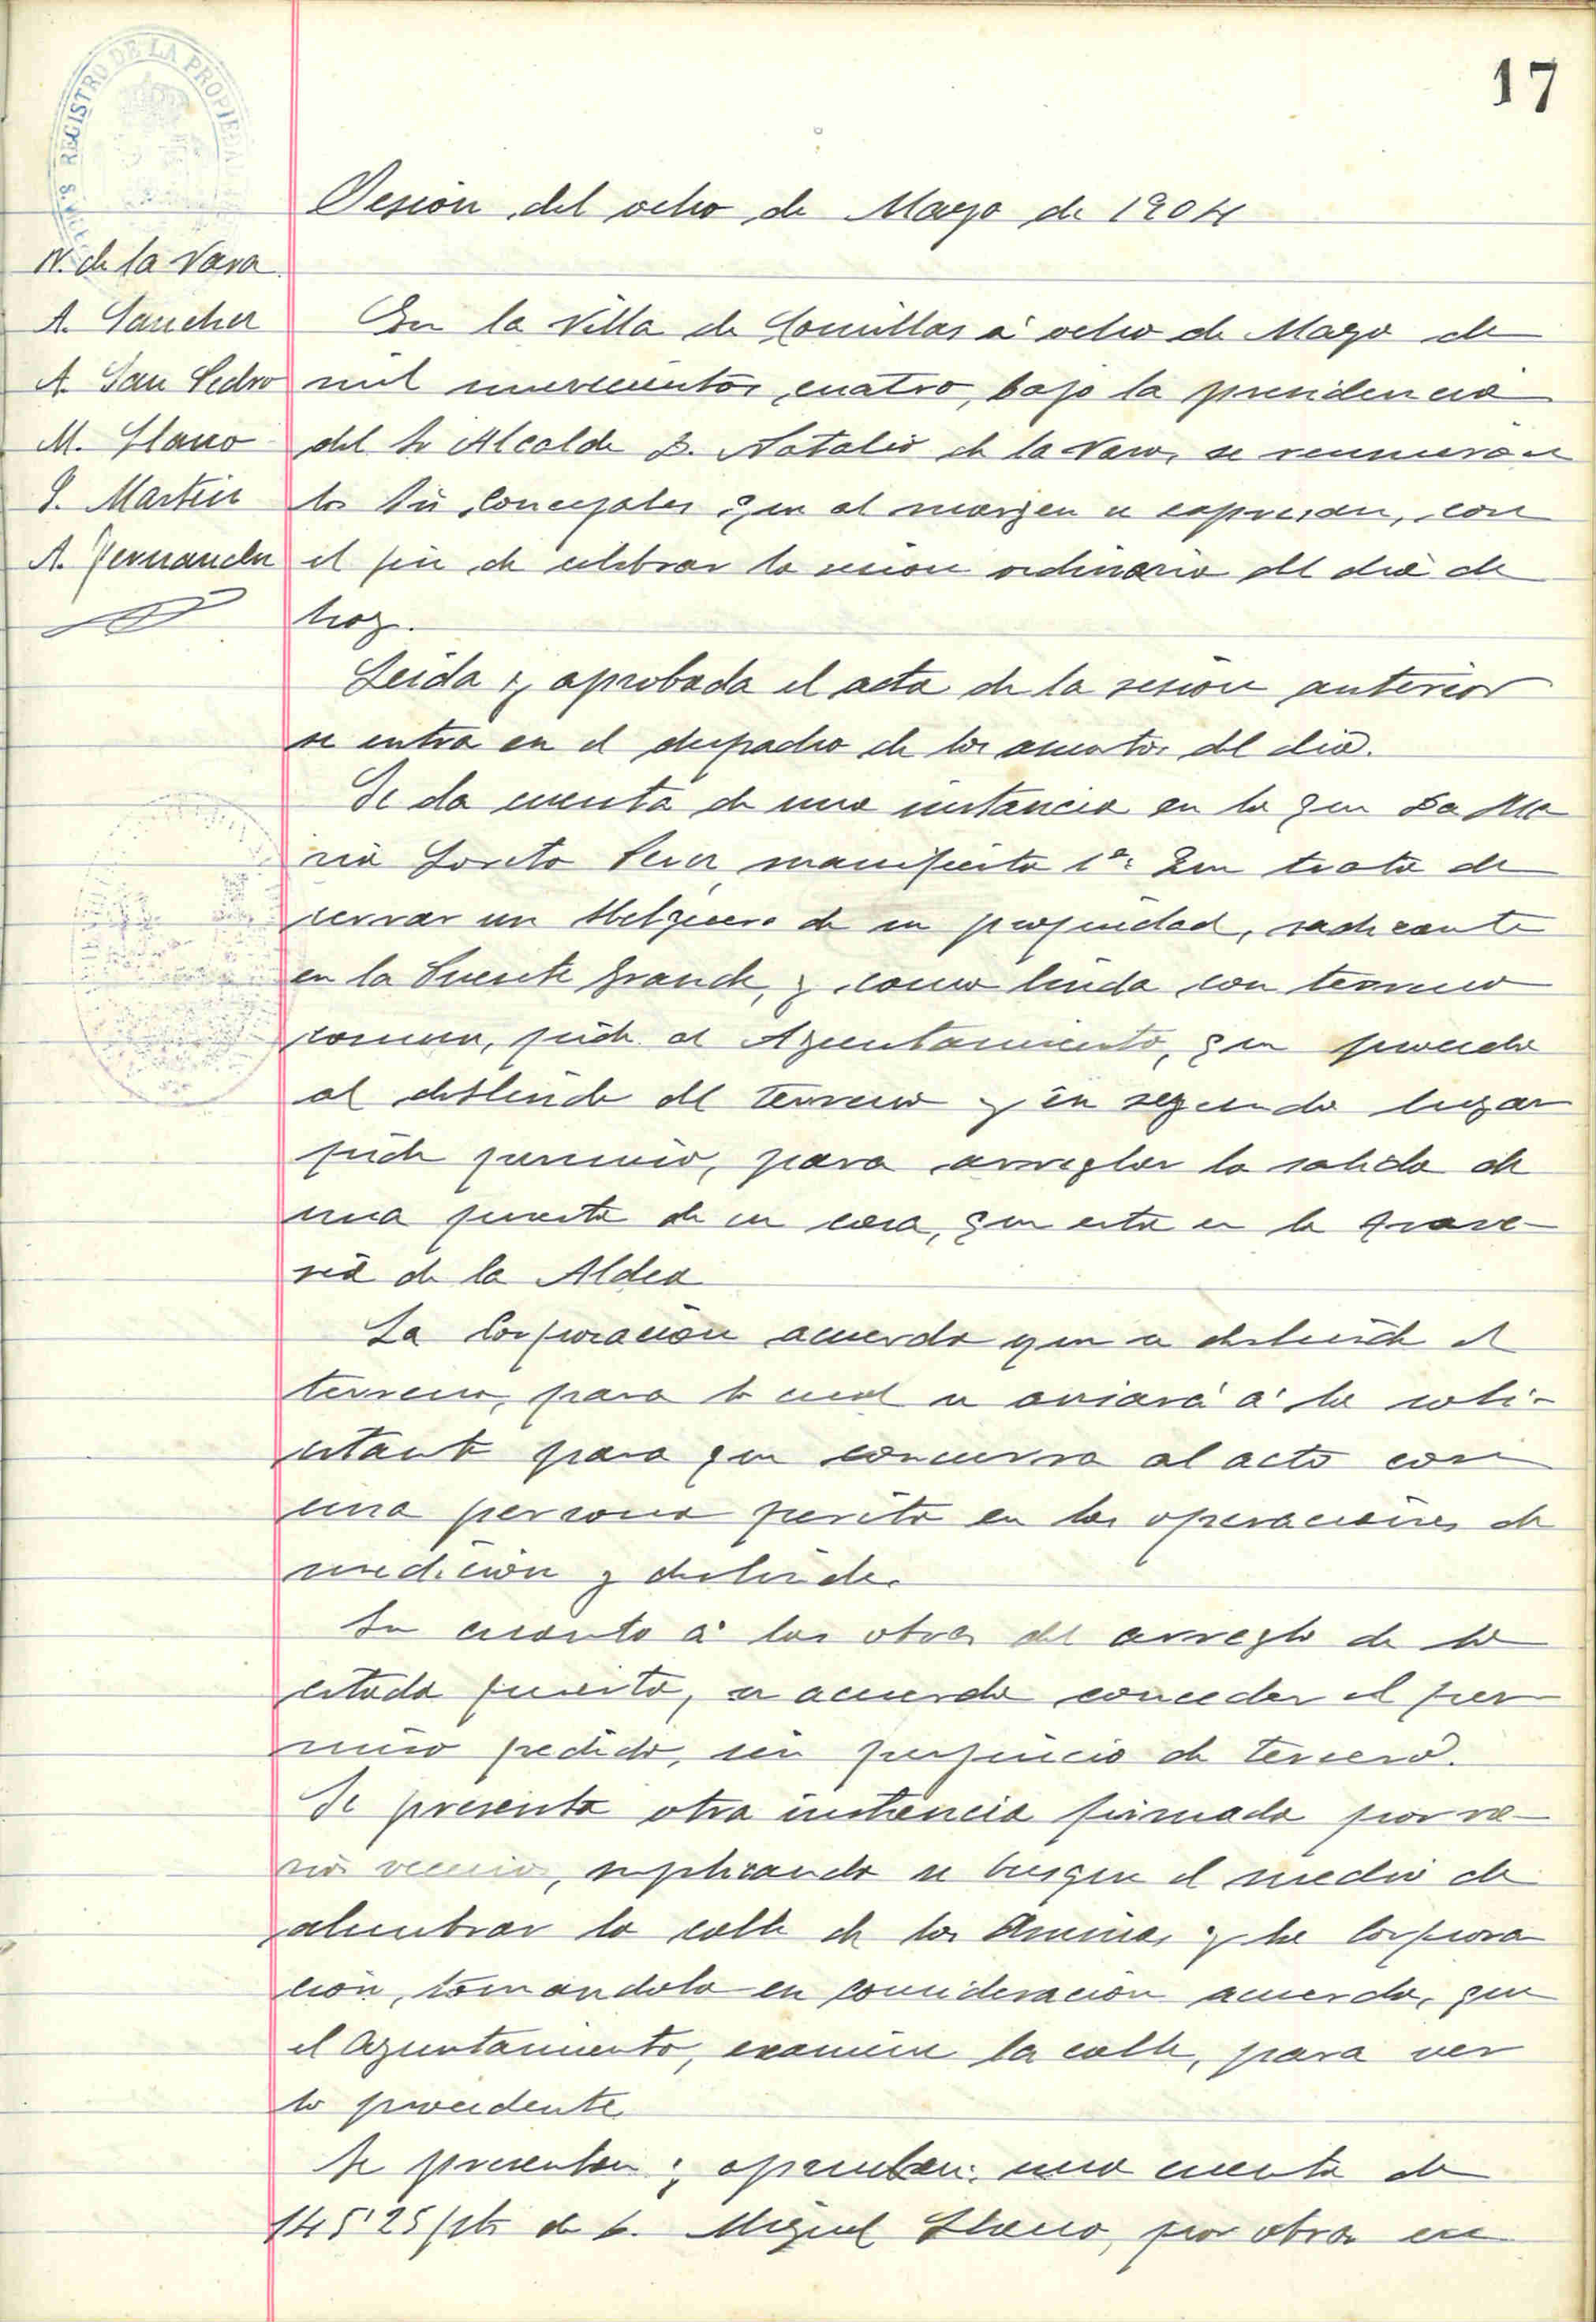 17
REGISTRO DE LA PROPIEDAD
Sesión del ocho de Marzo de 1904
N. de la Vara
A. Sanchez
A. San Pedro
M. Llano
J. Martin
A. Fernandez
En la Villa de Comillas á ocho de Marzo de
mil novecientos cuatro, bajo la presidencia
del Sr Alcalde D. Natalio de la Vara, se reunieron
los Sres Concejales que al margen se expresan, con
el fin de celebrar la sesion ordinaria del dia de
hoy.
Leida y aprobada el acta de la sesion anterior
se entra en el despacho de los asuntos del dia.
Se da cuenta de una instancia en la que Da Ma
ria Loreto manifiesta 1º: Que trata de
cerrar un de su propiedad, radicante
en la Fuente Grande, y como linda con terreno
comun, pide al Ayuntamiento, que proceda
al deslinde del terreno y en segundo lugar
pide permiso, para arreglar la salida de
una puerta de su casa, que esta en la trave-
sia de la Aldea
La Corporacion acuerda que se deslinde el
terreno, para lo cual se avisará á la soli-
citante para que concurra al acto con
una persona perita en las operaciones de
medicion y deslinde.
En cuanto á las obras del arreglo de la
citada puerta, se acuerda conceder el per
miso pedido, sin perjuicio de tercero.
Se presenta otra instancia firmada por va-
rios vecinos, suplicando se busque el medio de
alumbrar la calle de las Animas y la Corpora
ción, tomandola en consideracion acuerda, que
el Ayuntamiento, examine la calle, para ver
lo procedente
Se presentan y aprueban: una cuenta de
145'25 pts de D. Miguel Llano, por obras en